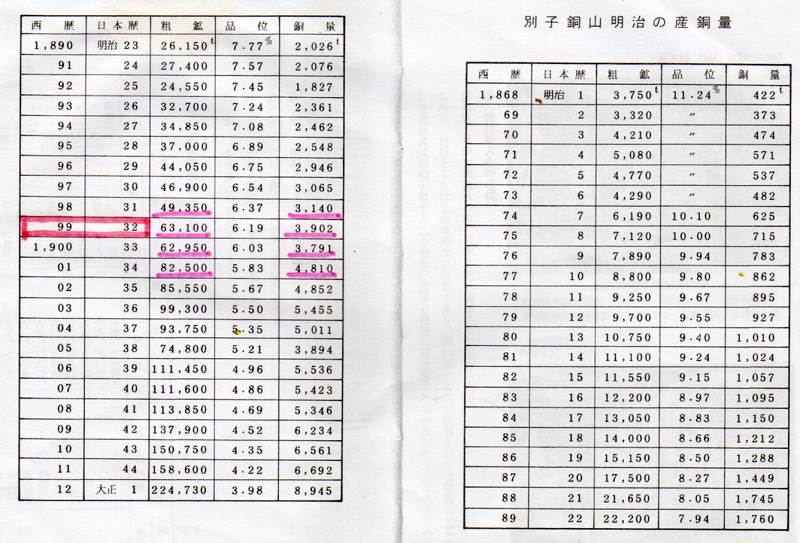 別子銅山明治の産銅量
西暦 日本歴 粗鉱 品位 銅量
1,890 明治 23 26,150t 7.77% 2,026t
91 24 27,400 7.57 2,076
92 25 24,550 7.45 1,827
93 26 32,700 7.24 2,361
94 27 34,850 7.08 2,462
95 28 37,000 6.89 2,548
96 29 44,050 6.75 2,946
97 30 46,900 6.54 3,065
98 31 49,350 6.37 3,140
99 32 63,100 6.19 3,902
1,900 33 62,950 6.03 3,791
01 34 82,500 5.83 4,810
02 35 85,550 5.67 4,852
03 36 99,300 5.50 5,455
04 37 93,750 5.35 5,011
05 38 74,800 5.21 3,894
06 39 111,450 4.96 5,536
07 40 111,600 4.86 5,423
08 41 113,850 4.69 5,346
09 42 137,902 4.52 6,234
10 43 150,750 4.35 6,561
11 44 158,600 4.22 6,692
12 大正 1 224,730 3.98 8,945
西暦 日本歴 粗鉱 品位 銅量
1,868 明治 1 3,750t 11.24% 422t
69 2 3,320 〃 373
70 3 4,210 〃 474
71 4 5,080 〃 571
72 5 4,770 〃 537
73 6 4,290 〃 482
74 7 6,190 10.10 625
75 8 7,120 10.00 715
76 9 7,890 9.94 783
77 10 8,800 9.80 862
78 11 9,250 9.67 895
79 12 9,700 9.55 927
80 13 10,750 9.40 1,010
81 14 11,100 9.24 1,024
82 15 11,550 9.15 1,057
83 16 12,200 8.97 1,095
84 17 13,050 8.83 1,150
85 18 14,000 8.66 1,212
86 19 15,150 8.50 1,288
87 20 17,500 8.27 1,449
88 21 21,650 8.05 1,745
89 22 22,200 7.94 1,760